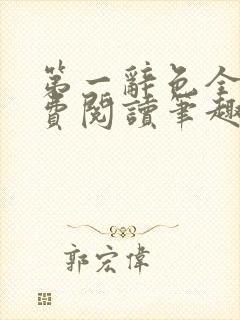 第一辭色全
費閱讀筆趣
郭宏偉